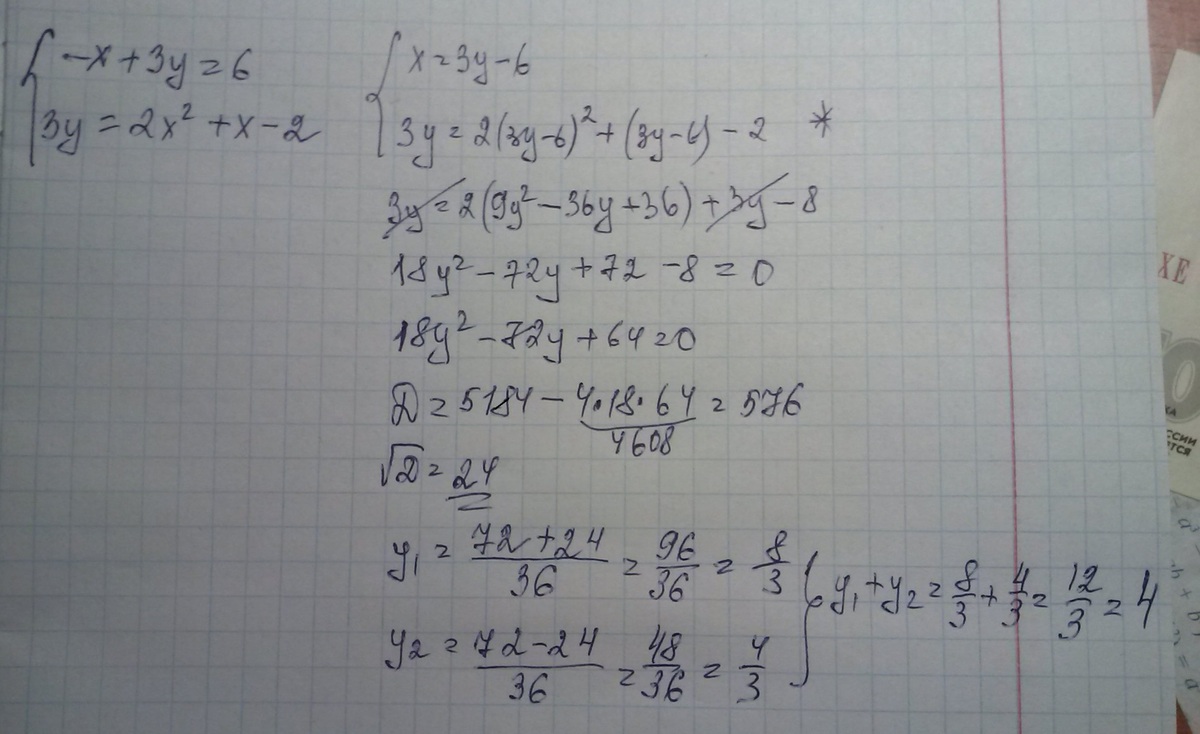 -x + 3y = 6
3y = 2x² + x - 2
x = 3y - 6
3y = 2(3y-6)² + (3y-6) - 2 *
3y = 2(9y² - 36y + 36) + 3y - 8
18y² - 72y + 72 - 8 = 0
18y² - 72y + 64 = 0
D = 5184 - 4·18·64 = 576
4608
√D = 24
y₁ = (72+24)/36 = 96/36 = 8/3
y₂ = (72-24)/36 = 48/36 = 4/3
y₁ + y₂ = 8/3 + 4/3 = 12/3 = 4
ХЕ